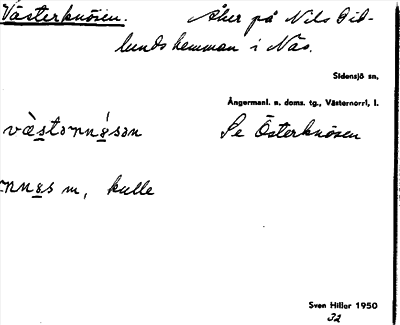 Västerknösen. Åker på Nils Öd-
lunds hemman i Näs.
Sidensjö sn,
Ångermanl. n. doms. tg., Västernorrl. l.
Se Österknösen
m, kulle
Sven Hiller 1950
32